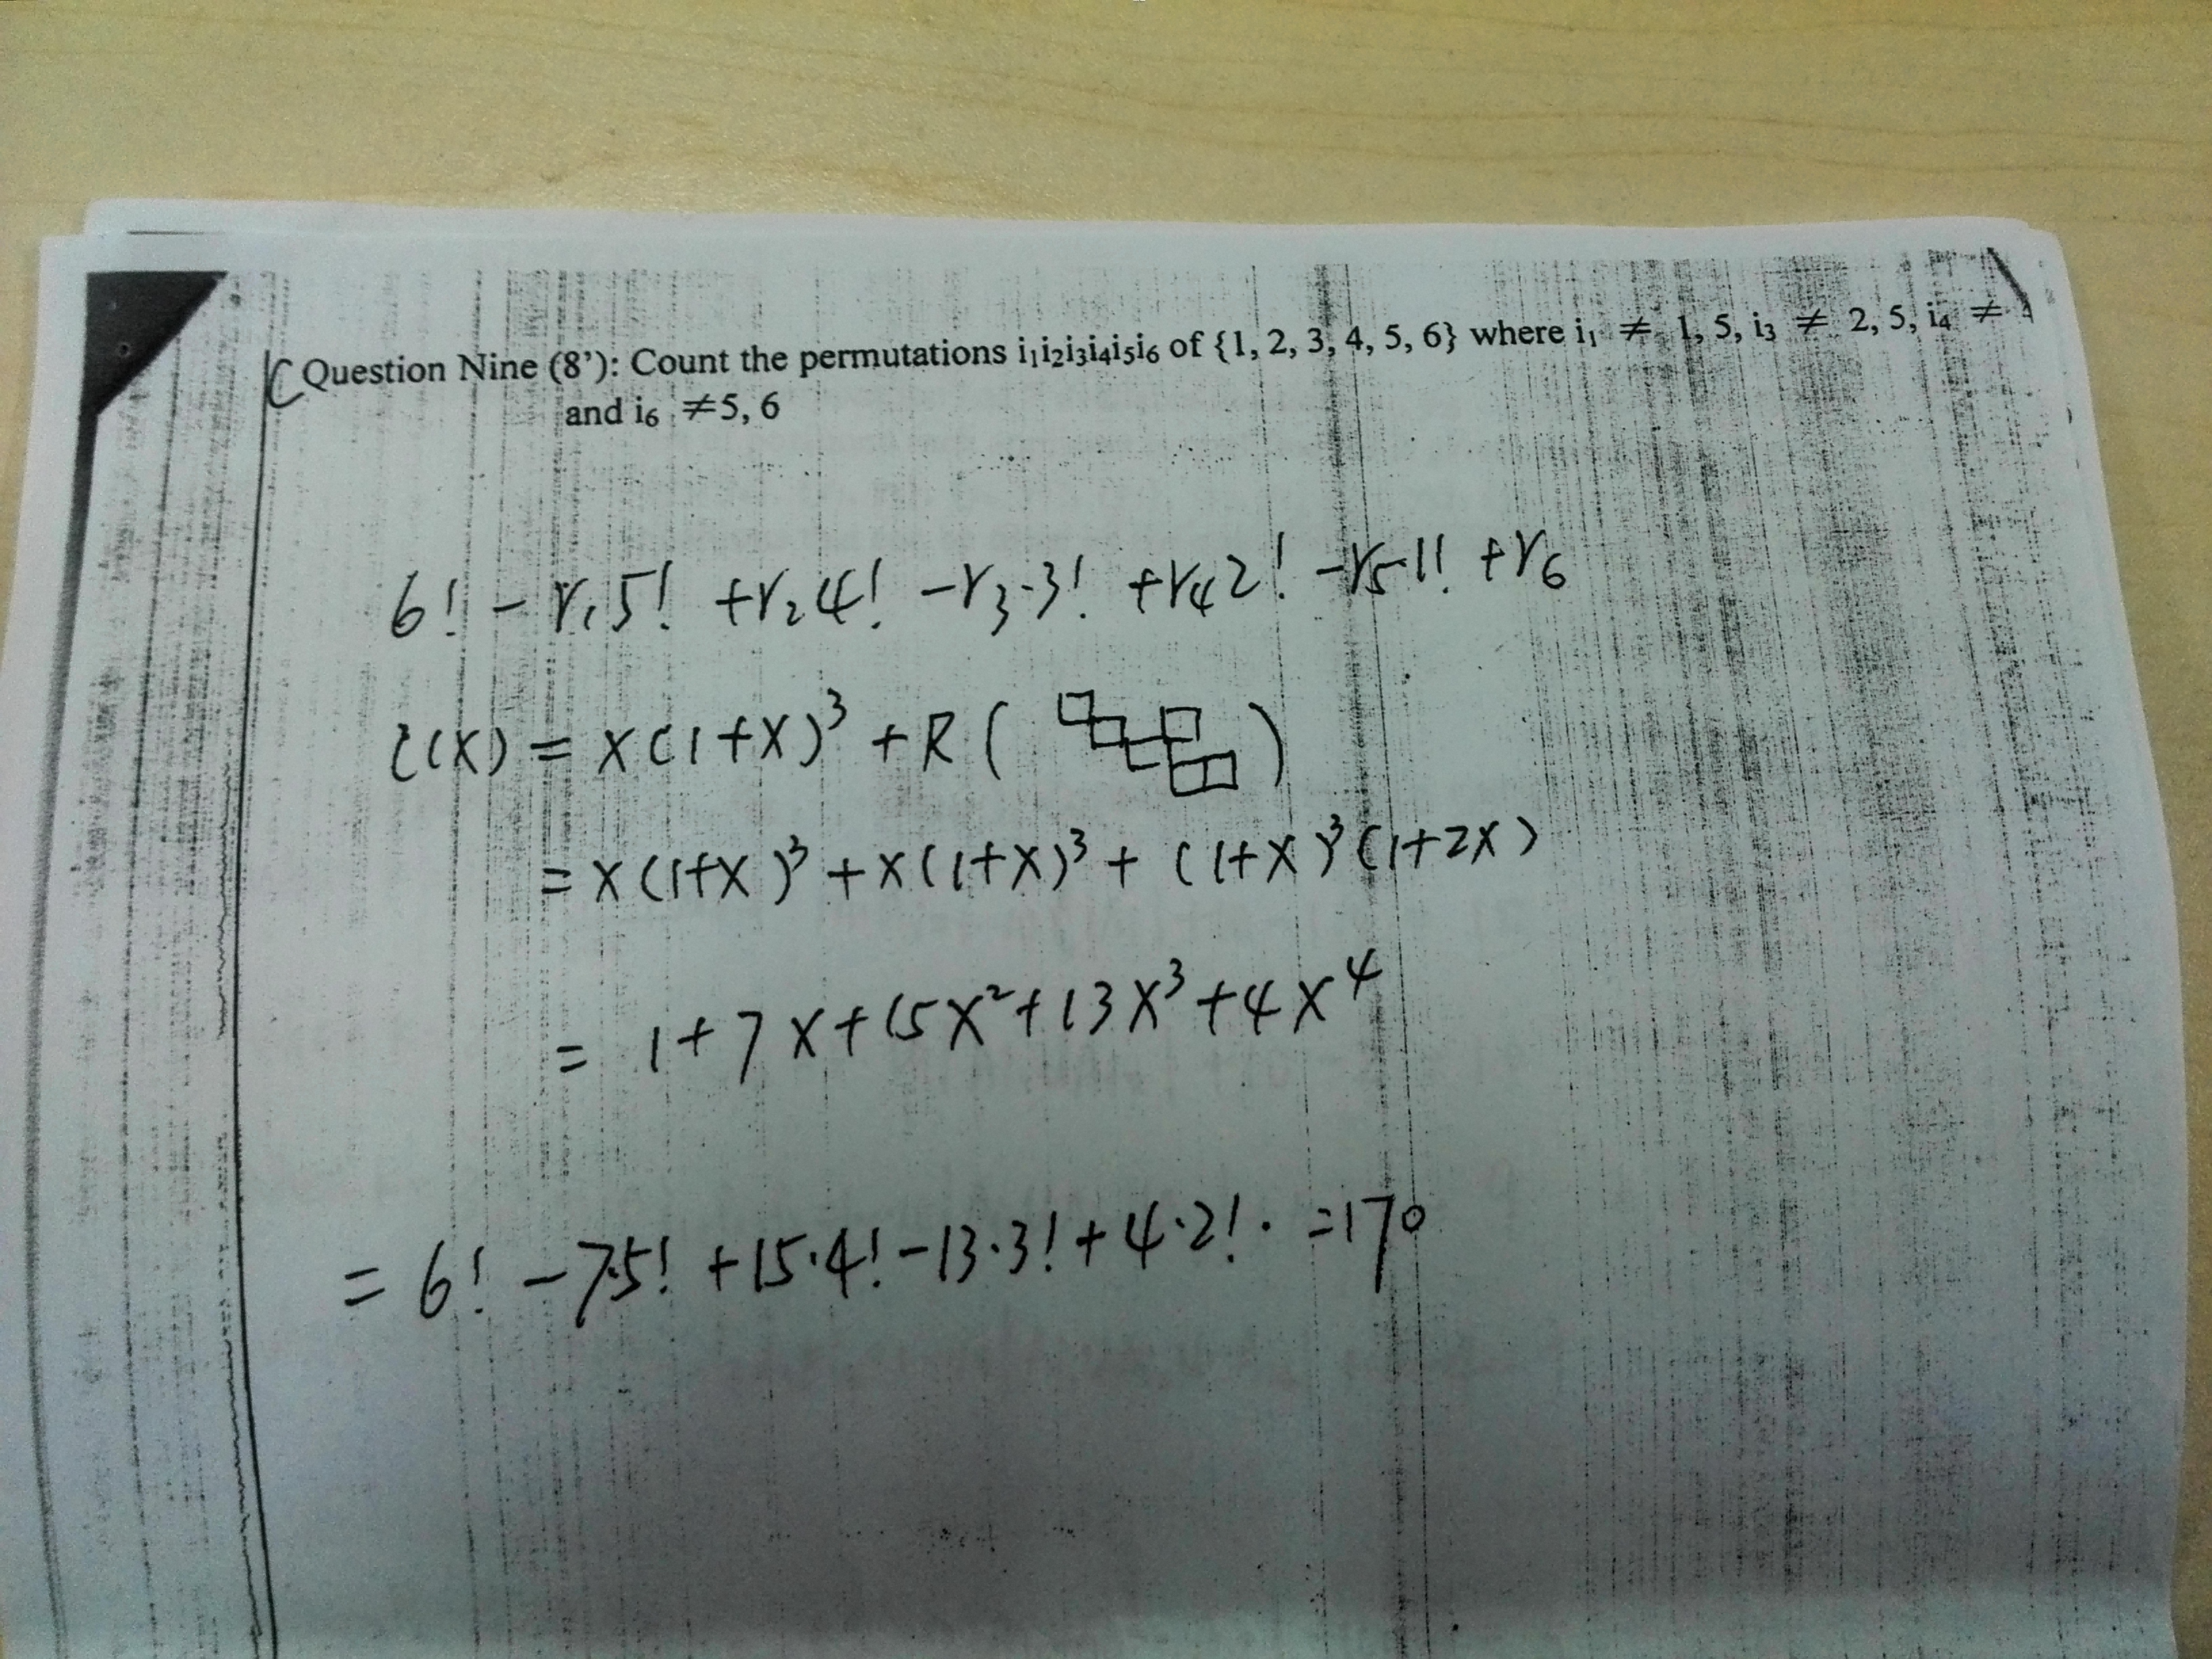 Question Nine (8’): Count the permutations i₁i₂i₃i₄i₅i₆ of {1, 2, 3, 4, 5, 6} where i₁ ≠ 1, 5, i₃ ≠ 2, 5, i₄ ≠
and i₆ ≠5, 6
6! - r₁5! +r₂4! -r₃·3! +r₄2! -r₅·1! +r₆
= x(1+x)³ +R( )
= x(1+x)³ +x(1+x)³ + (1+x)³(1+2x)
= 1+7x+15x²+13x³+4x⁴
= 6! -7·5! +15·4! -13·3! + 4·2! · =170